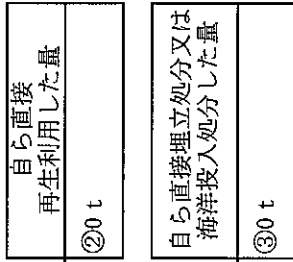 自ら直接
再生利用した量
②0 t
自ら直接埋立処分又は
海洋投入処分した量
③0 t